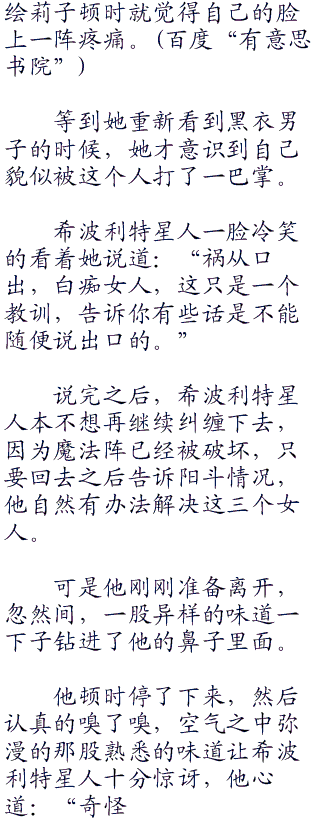 绘莉子顿时就觉得自己的脸
上一阵疼痛。(百度“有意思
书院”)
等到她重新看到黑衣男
子的时候，她才意识到自己
貌似被这个人打了一巴掌。
希波利特星人一脸冷笑
的看着她说道：“祸从口
出，白痴女人，这只是一个
教训，告诉你有些话是不能
随便说出口的。”
说完之后，希波利特星
人本不想再继续纠缠下去，
因为魔法阵已经被破坏，只
要回去之后告诉阳斗情况，
他自然有办法解决这三个女
人。
可是他刚刚准备离开，
忽然间，一股异样的味道一
下子钻进了他的鼻子里面。
他顿时停了下来，然后
认真的嗅了嗅，空气之中弥
漫的那股熟悉的味道让希波
利特星人十分惊讶，他心
道：“奇怪